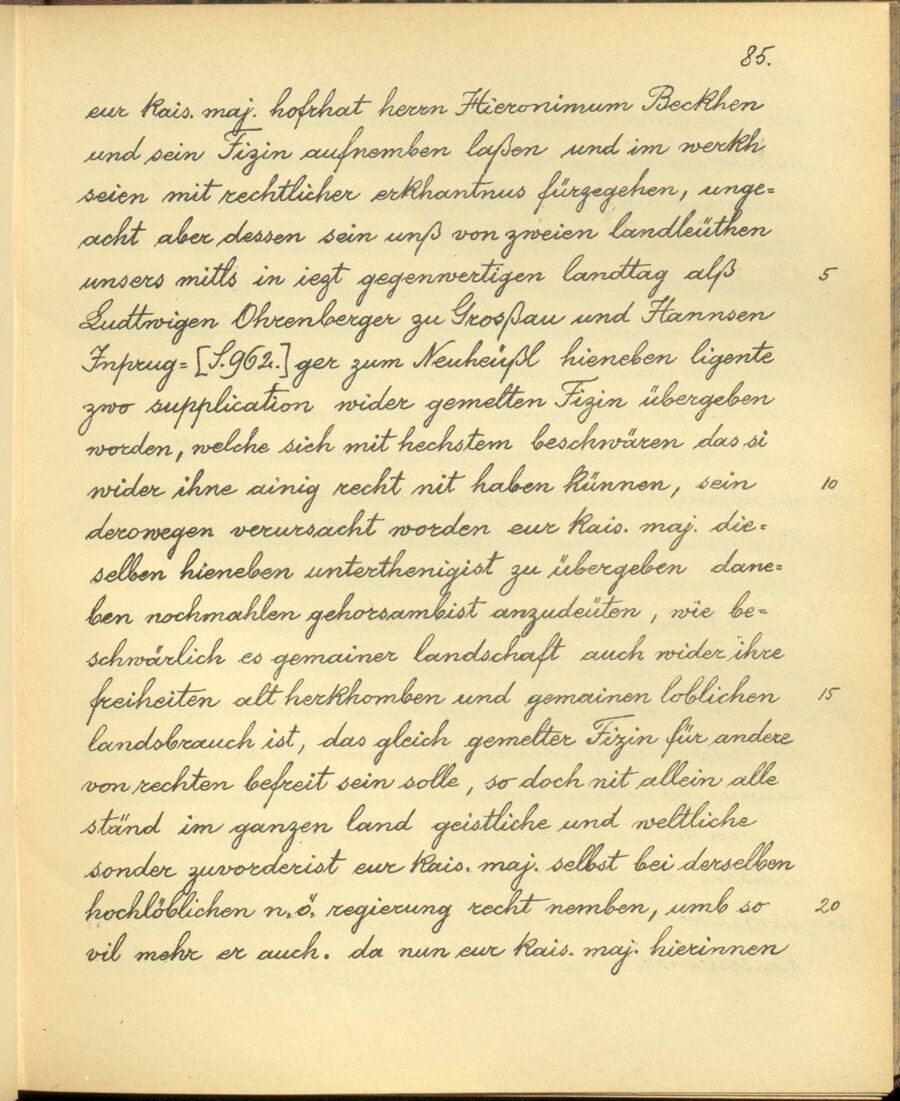 85.
eur kais. maj. hofrhat herrn Hieronimum Beckhen
und sein Fizin aufnemben laßen und im werkh
seien mit rechtlicher erkhantnus fürgegehen, unge=
acht aber dessen sein unß von zweien landleüthen
unsers mitls in iezt gegenwertigen landtag alß 5
Ludtwigen Ohrenberger zu Grosßau und Hannsen
Inprug=[S.962.]ger zum Neuheüßl hieneben ligente
zwo supplication wider gemelten Fizin übergeben
worden, welche sich mit hechstem beschwären das si
wider ihne ainig recht nit haben künnen, sein 10
derowegen verursacht worden eur kais. maj. die=
selben hieneben unterthenigist zu übergeben dane=
ben nochmahlen gehorsambist anzudeüten, wie be=
schwärlich es gemainer landschaft auch wider ihre
freiheiten alt herkhomben und gemainen loblichen 15
landsbrauch ist, das gleich gemelter Fizin für andere
von rechten befreit sein solle, so doch nit allein alle
ständ im ganzen land geistliche und weltliche
sonder zuvorderist eur kais. maj. selbst bei derselben
hochlöblichen n.ö. regierung recht nemben, umb so 20
vil mehr er auch. da nun eur kais. maj. hierinnen